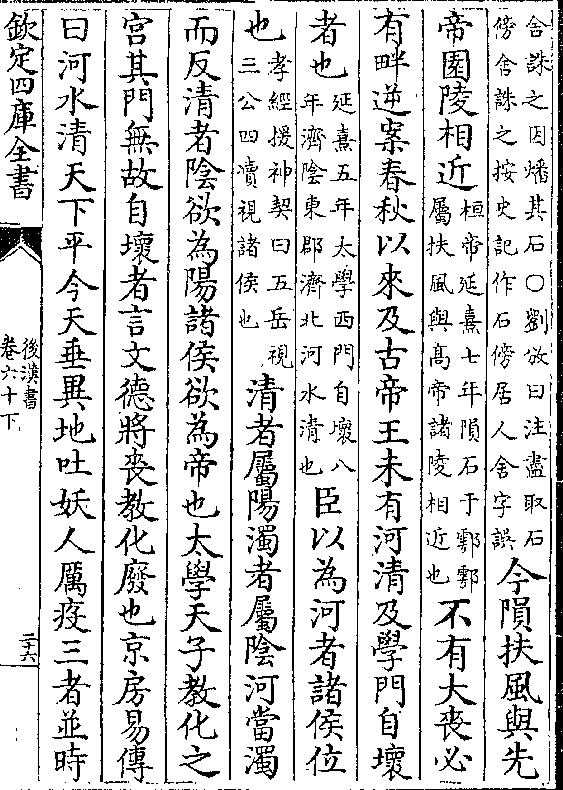 舍誅之因燔其石〇劉攽曰注盡取石
傍舍誅之按史記作石傍居人舍字誤
今隕扶風與先
帝園陵相近
桓帝延熹七年隕石于鄠鄠
屬扶風與高帝諸陵相近也
不有大喪必
有畔逆案春秋以來及古帝王未有河清及學門自壞
者也
延熹五年太學西門自壞八
年濟陰東郡濟北河水清也
臣以為河者諸侯位
也
孝經援神契曰五岳視
三公四瀆視諸侯也
清者屬陽濁者屬陰河當濁
而反清者陰欲為陽諸侯欲為帝也太學天子教化之
宮其門無故自壞者言文德將喪教化廢也京房易傳
曰河水清天下平今天垂異地吐妖人厲疫三者並時
欽定四庫全書
後漢書
卷六十下
二十六